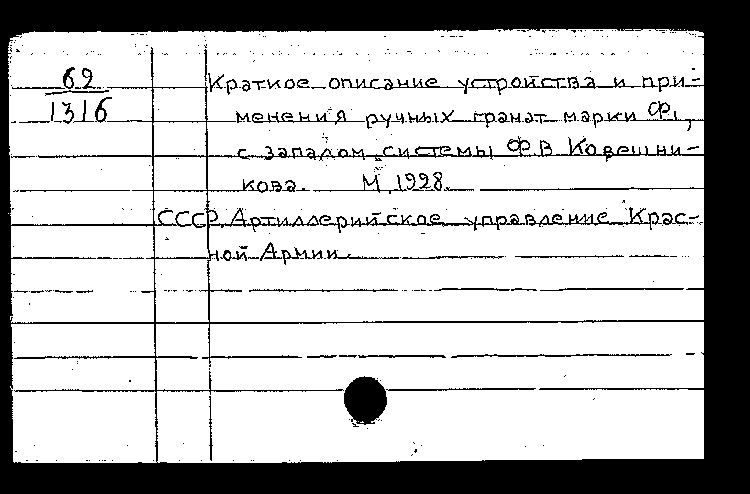 62
1316
Краткое описание устройства и при-
менения ручных гранат марки Ф1,
с запалом системы Ф.В Ковешни-
кова. М, 1928.
СССР. Артиллерийское управление Крас-
ной Армии.